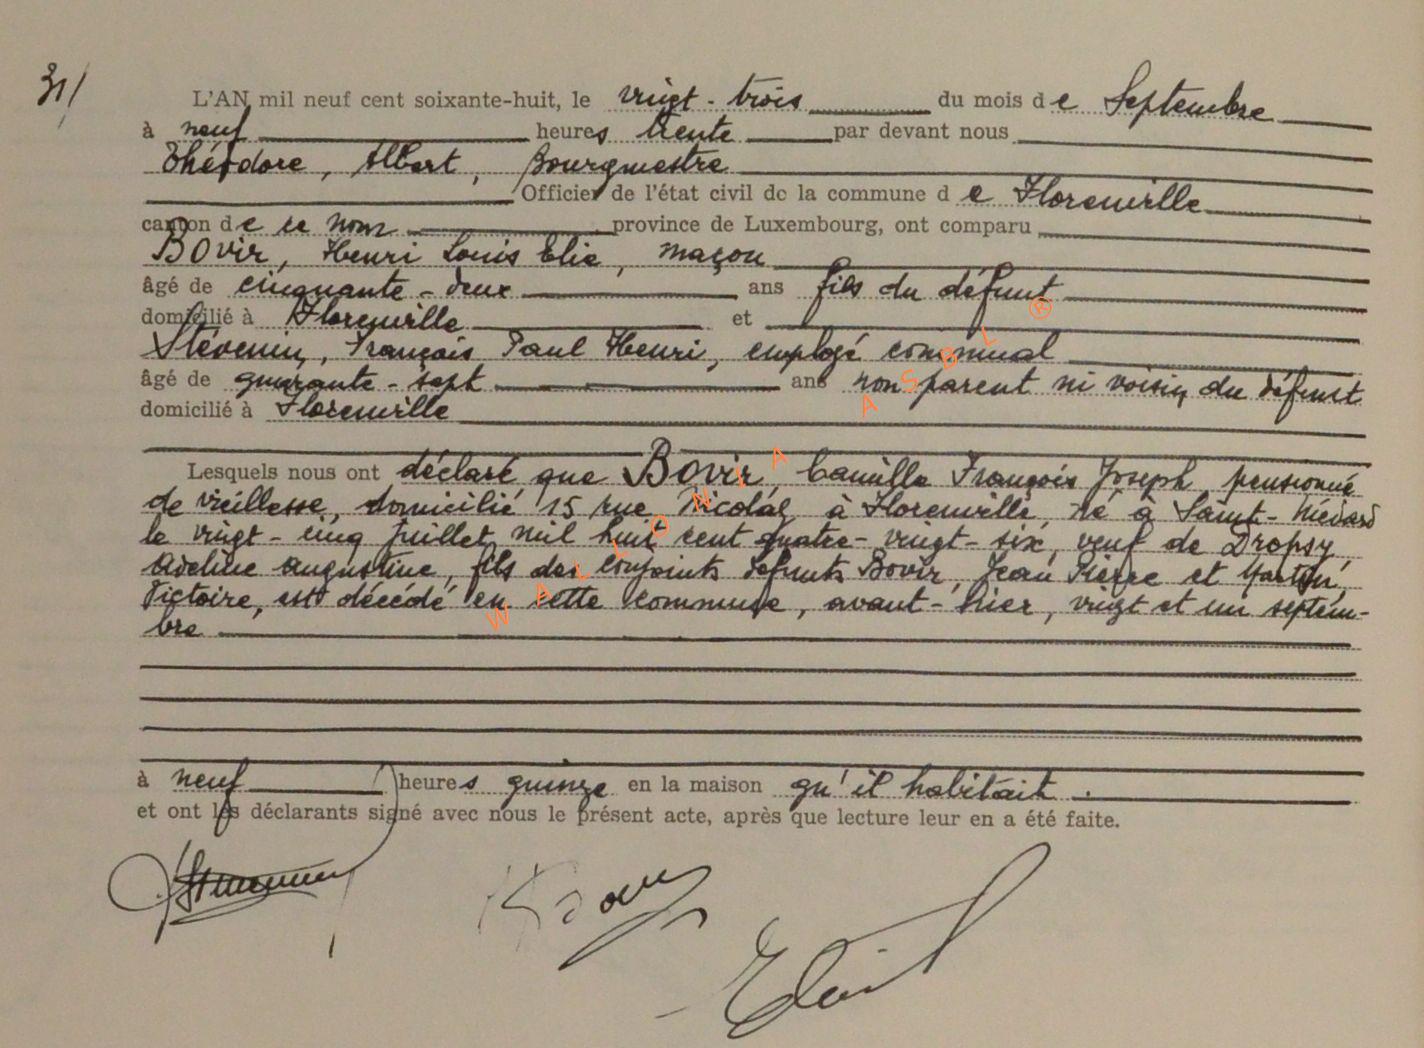 31/
L'AN mil neuf cent soixante-huit, le vingt-trois du mois de Septembre
à neuf heures trente par devant nous
Théodore, Albert, Bourgmestre
Officier de l'état civil de la commune de Florenville
canton de ce nom province de Luxembourg, ont comparu
Bovir, Henri Louis Elie, maçon
âgé de cinquante-deux ans fils du défunt
domicilié à Florenville et
Stévenin, François Paul Henri, employé communal
âgé de quarante-sept ans non parent ni voisin du défunt
domicilié à Florenville
Lesquels nous ont déclaré que Bovir, Camille François Joseph, pensionné
de vieillesse, domicilié 15 rue Nicolas à Florenville, né à Saint-Médard
le vingt-cinq juillet mil huit cent quatre-vingt-six, veuf de Dropsy,
Adeline Augustine, fils des conjoints défunts Bovir, Jean Pierre et Martin,
Victoire, est décédé en cette commune, avant-hier, vingt et un septem-
bre
à neuf heures quinze en la maison qu'il habitait.
et ont les déclarants signé avec nous le présent acte, après que lecture leur en a été faite.
WALLONIA ASBL ®